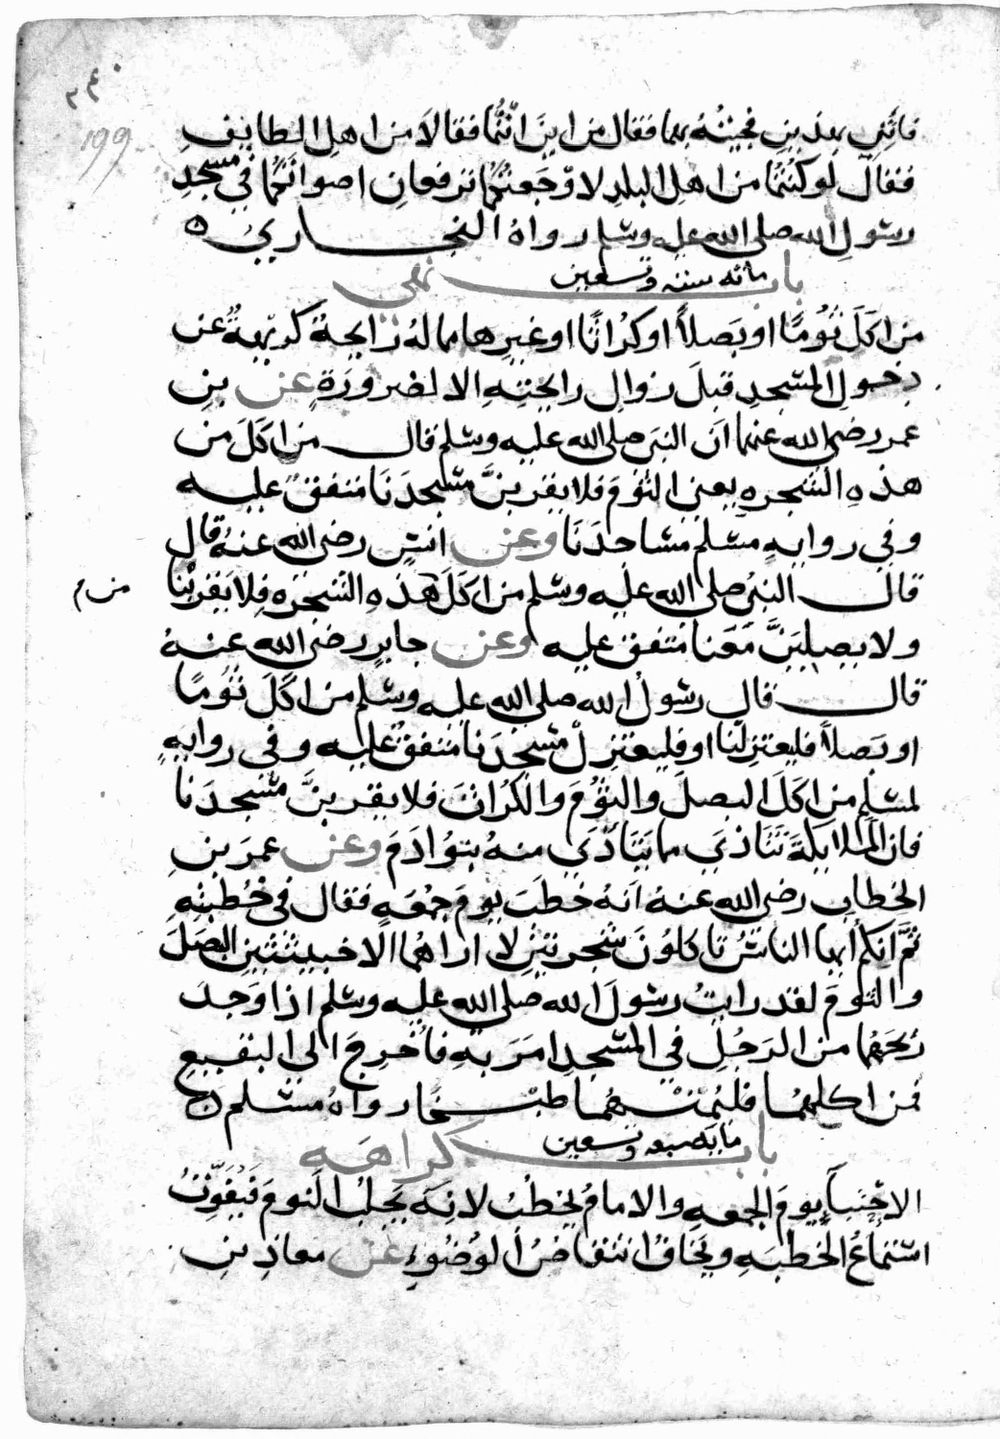 ٢٤٠
199
فاتني بهذين فجيته بهما فقال من اين انتما فقالا من اهل الطايف
فقال لو كنتما من اهل البلد لاوجعتكما ترفعان اصواتكما في مسجد
رسول الله صلى الله عليه وسلم رواه البخاري ه
باب مائه ستة وتسعين نهي
من اكل ثومًا او بصلاً او كراثًا او غيرها مما له رايحة كريهة عن
دخول المسجد قبل زوال رايحته الا لضرورة عن بن
عمر رضي الله عنهما ان النبي صلى الله عليه وسلم قال من اكل من
هذه الشجره يعني الثوم فلا يقربنَّ مسجدنا متفق عليه
وفي روايه مسلم مساجدنا وعن انس رضي الله عنه قال
قال النبي صلى الله عليه وسلم من اكل هذه الشجره فلا يقربنا
من م
ولا يصلينَّ معنا متفق عليه وعن جابر رضي الله عنه
قال قال رسول الله صلى الله عليه وسلم من اكل ثومًا
او بصلاً فليعتزلنا او فليعتزل مسجدنا متفق عليه وفي روايه
لمسلم من اكل البصل والثوم والكراث فلا يقربنَّ مسجدنا
فان الملايكة تتاذي مما يتاذي منه بنوا ادم وعن عمر بن
الخطاب رضي الله عنه انه خطب يوم جمعه فقال في خطبته
ثمَّ انكم ايها الناس تاكلون شجرتين لا اراهما الا خبيثتين البصل
والثوم لقد رايت رسول الله صلى الله عليه وسلم اذا وجد
ريحهما من الرجل في المسجد امر به فاخرج الى البقيع
فمن اكلهما فليمتهما طبخا رواه مسلم
باب مايه سبعه وتسعين كراهه
الاحتباء يوم الجمعه والامام يخطب لانه يجلب النوم فيفوت
استماع الخطبه ويخاف انتقاض الوضوء عن معاذ بن